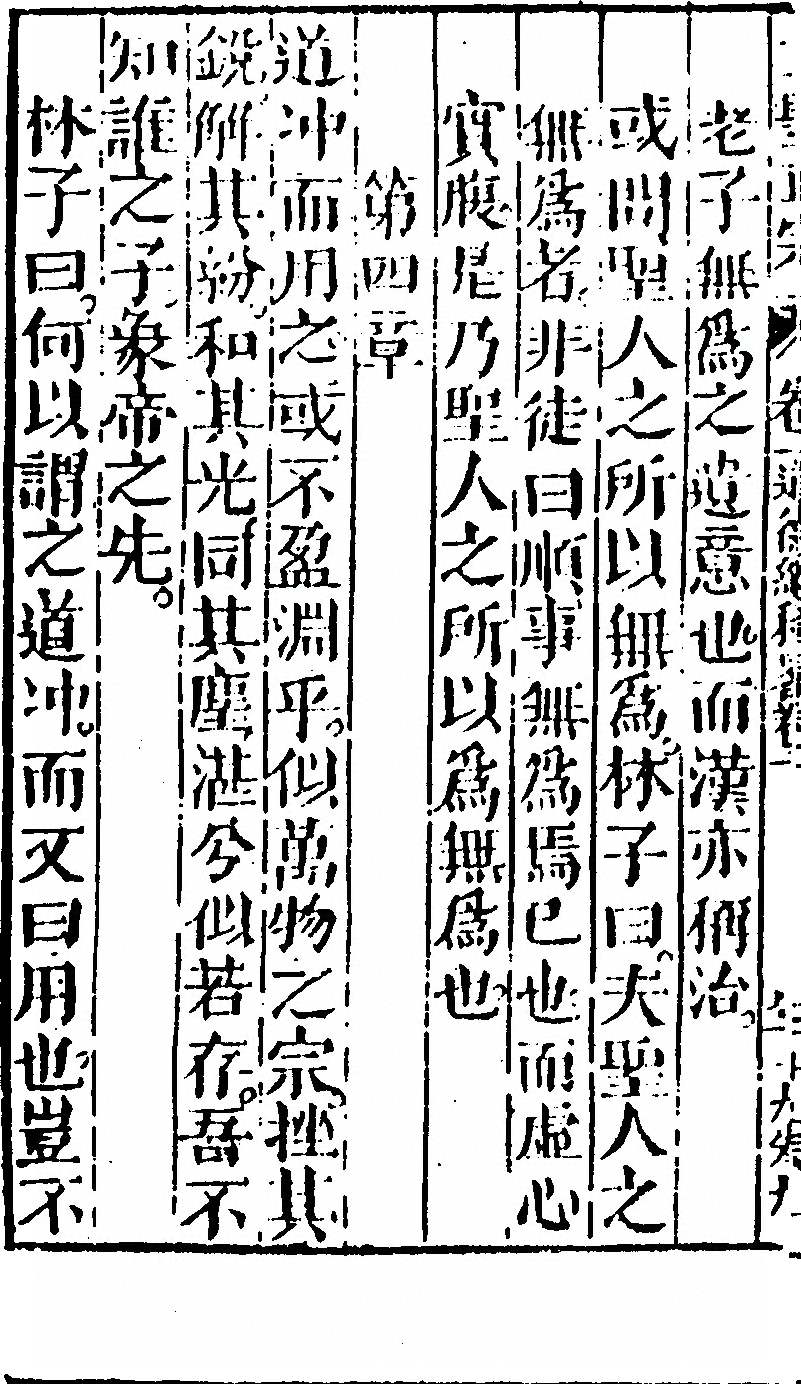 老子無為之遺意也而漢亦稱治。
或問聖人之所以無為。林子曰。夫聖人之
無為者。非徒曰順事無為焉已也而虛心
實腹。是乃聖人之所以為無為也。
第四章
道冲而用之或不盈淵乎。似萬物之宗。挫其
銳。解其紛。和其光同其塵湛兮似若存。吾不
知誰之子象帝之先。
林子曰。何以謂之道冲。而又曰用也。豈不